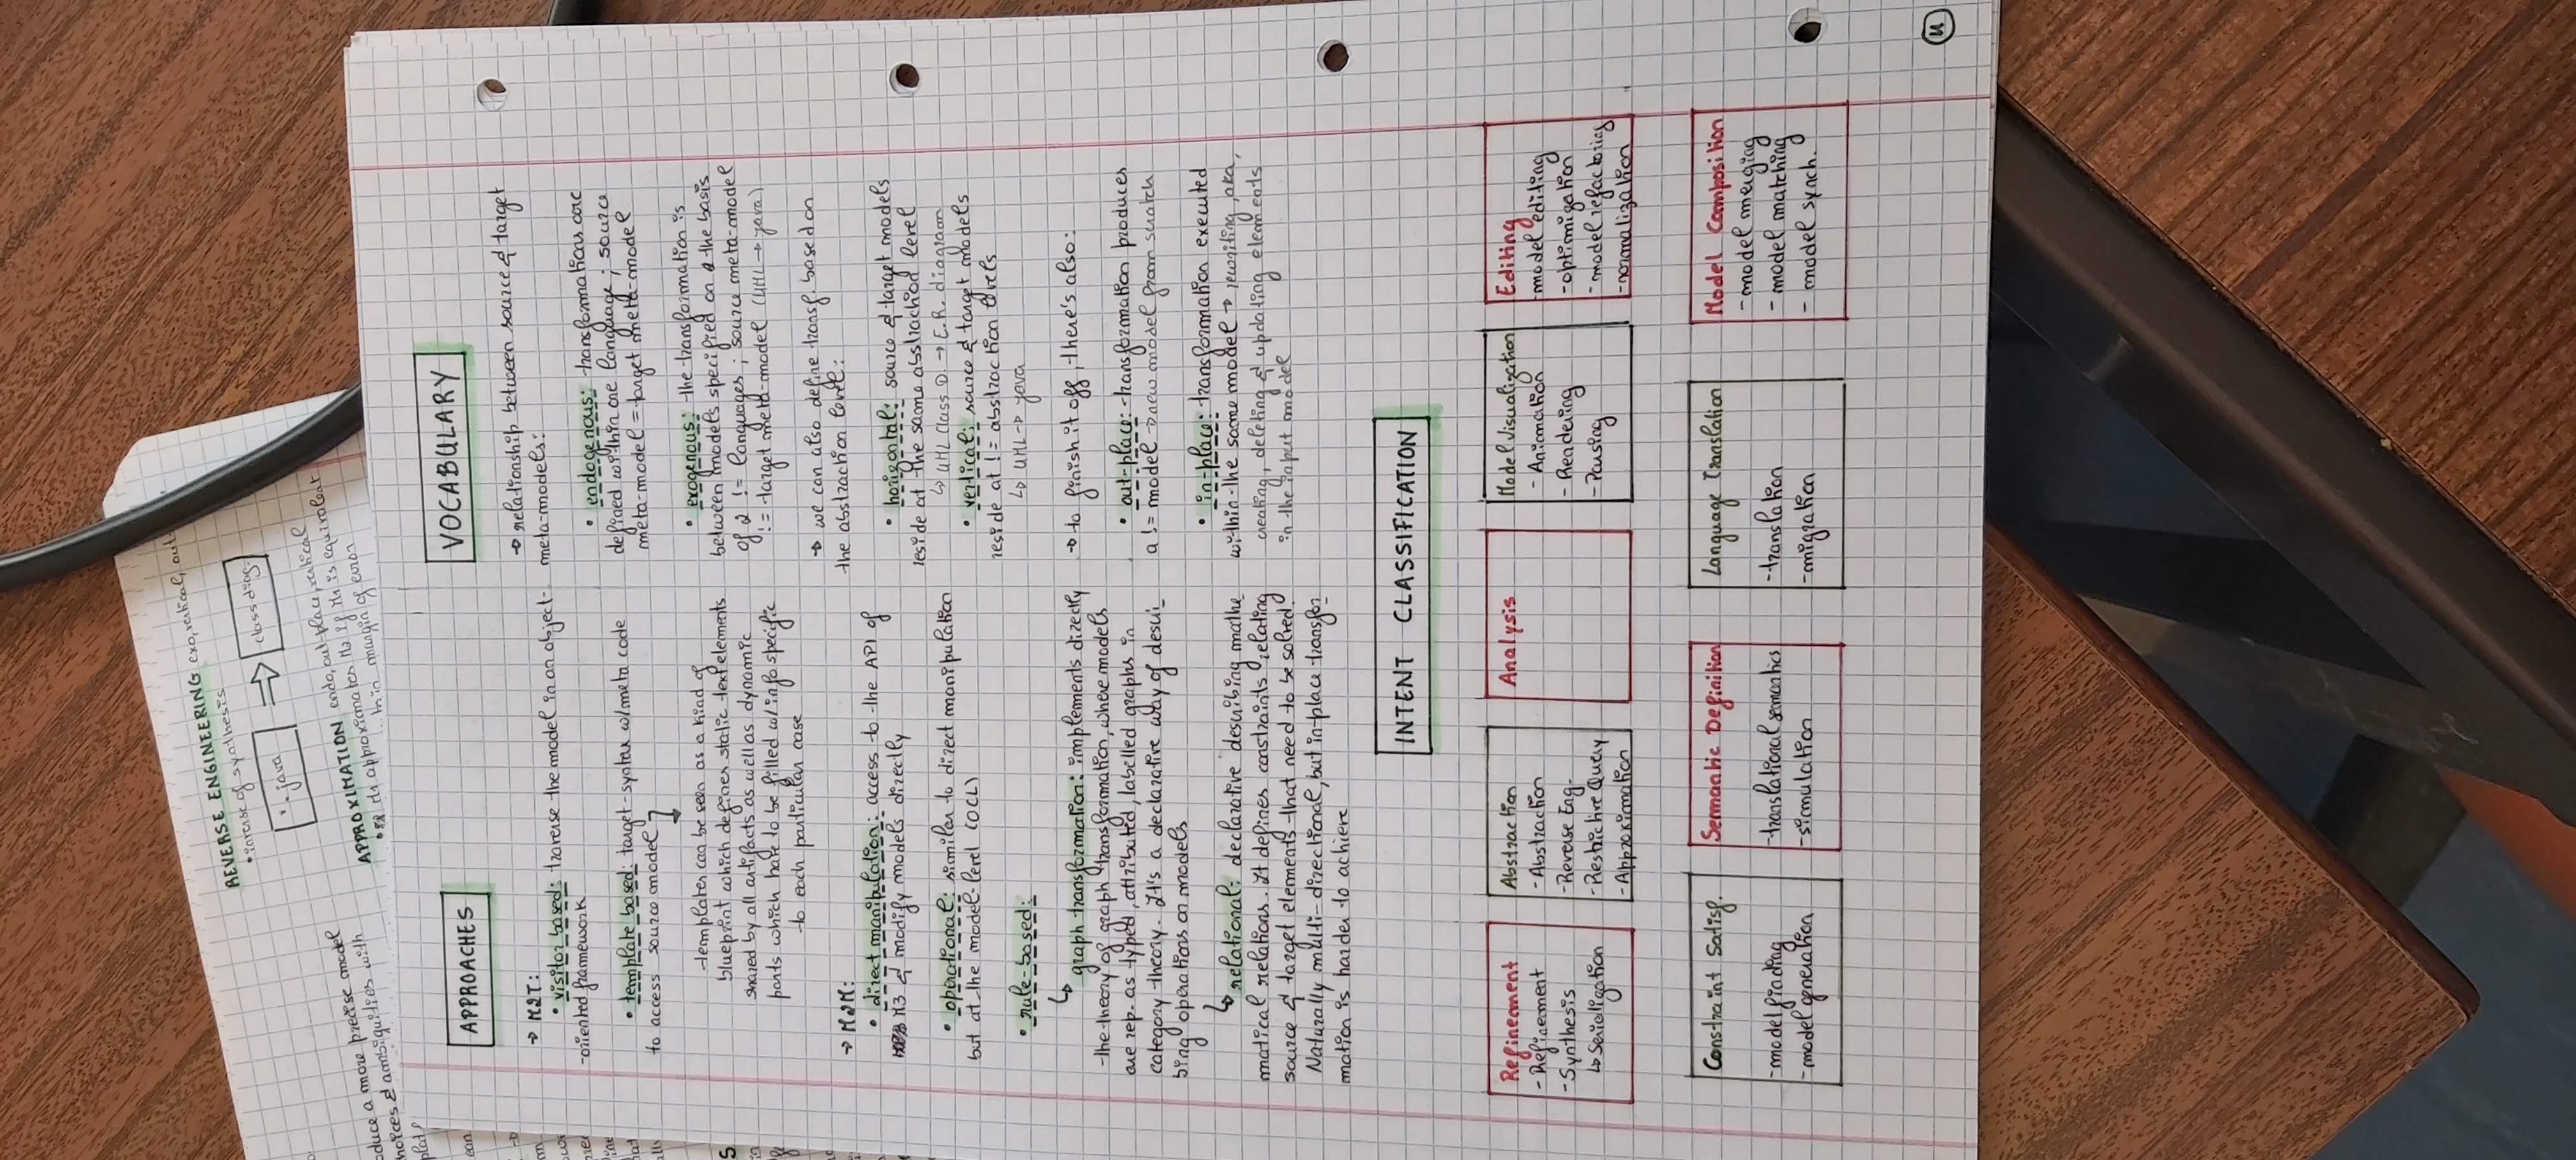 APPROACHES
→ M2T:
• visitor based: traverse the model in an object-
-oriented framework
• template based: target-syntax w/meta code
to access source model
templates can be seen as a kind of
blueprint which defines static text elements
shared by all artifacts as well as dynamic
parts which have to be filled w/info specific
to each particular case
→ M2M:
• direct manipulation: access to the API of
M3 & modify models directly
• operational: similar to direct manipulation
but at the model-level (OCL)
• rule-based:
↳ graph transformation: implements directly
the theory of graph transformation, where models
are rep. as typed, attributed, labelled graphs in
category theory. It's a declarative way of descri-
bing operations on models
↳ relational: declarative describing mathe
matical relations. It defines constraints relating
source & target elements that need to be solved.
Naturally multi-directional, but in-place transfor-
mation is harder to achieve
VOCABULARY
→ relationship between source & target
meta-models:
• endogenous: transformations are
defined within one language; source
meta-model = target meta-model
• exogenous: the transformation is
between models specified on the basis
of 2 != languages; source meta-model
!= target meta-model (UML → java)
→ we can also define transf. based on
the abstraction level:
• horizontal: source & target models
reside at the same abstraction level
↳ UML Class D. → E.R. diagram
• vertical: source & target models
reside at != abstraction levels
↳ UML → java
→ to finish it off, there's also:
• out-place: transformation produces
a != model → new model from scratch
• in-place: transformation executed
within the same model → rewriting, aka,
creating, deleting & updating elements
in the input model
INTENT CLASSIFICATION
Refinement
- Refinement
- Synthesis
↳ Serialization
Abstraction
- Abstraction
- Reverse Eng.
- Restrictive Query
- Approximation
Analysis
Model Visualization
- Animation
- Rendering
- Parsing
Editing
- model editing
- optimization
- model refactoring
- normalization
Constraint Satisf.
- model finding
- model generation
Semantic Definition
- translational semantics
- simulation
Language Translation
- translation
- migration
Model Composition
- model merging
- model matching
- model synch.
REVERSE ENGINEERING exo, vertical, out
• inverse of synthesis
:.java ⇒ class diag.
APPROXIMATION endo, out-place, vertical
• m1 approximates m2 if m1 is equivalent
to m2 in margin of error
oduce a more precise model
hoices & ambiguities with